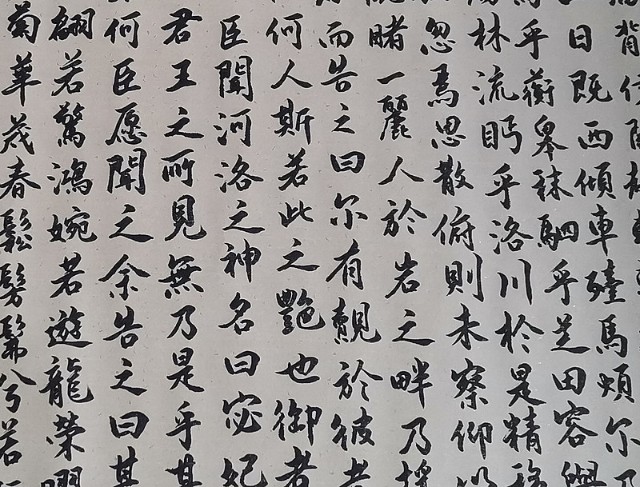 背
日既西傾車殆馬煩尔乃
乎蘅皋秣駟乎芝田容與
林流眄乎洛川於是精移
忽焉思散俯則未察仰以
睹一麗人於岩之畔乃援
而告之曰尔有覿於彼者
何人斯若此之艷也御者
臣聞河洛之神名曰宓妃
君王之所見無乃是乎其
何臣愿聞之余告之曰其
翩若驚鴻婉若遊龍榮曜
菊華茂春鬆髣髴兮若